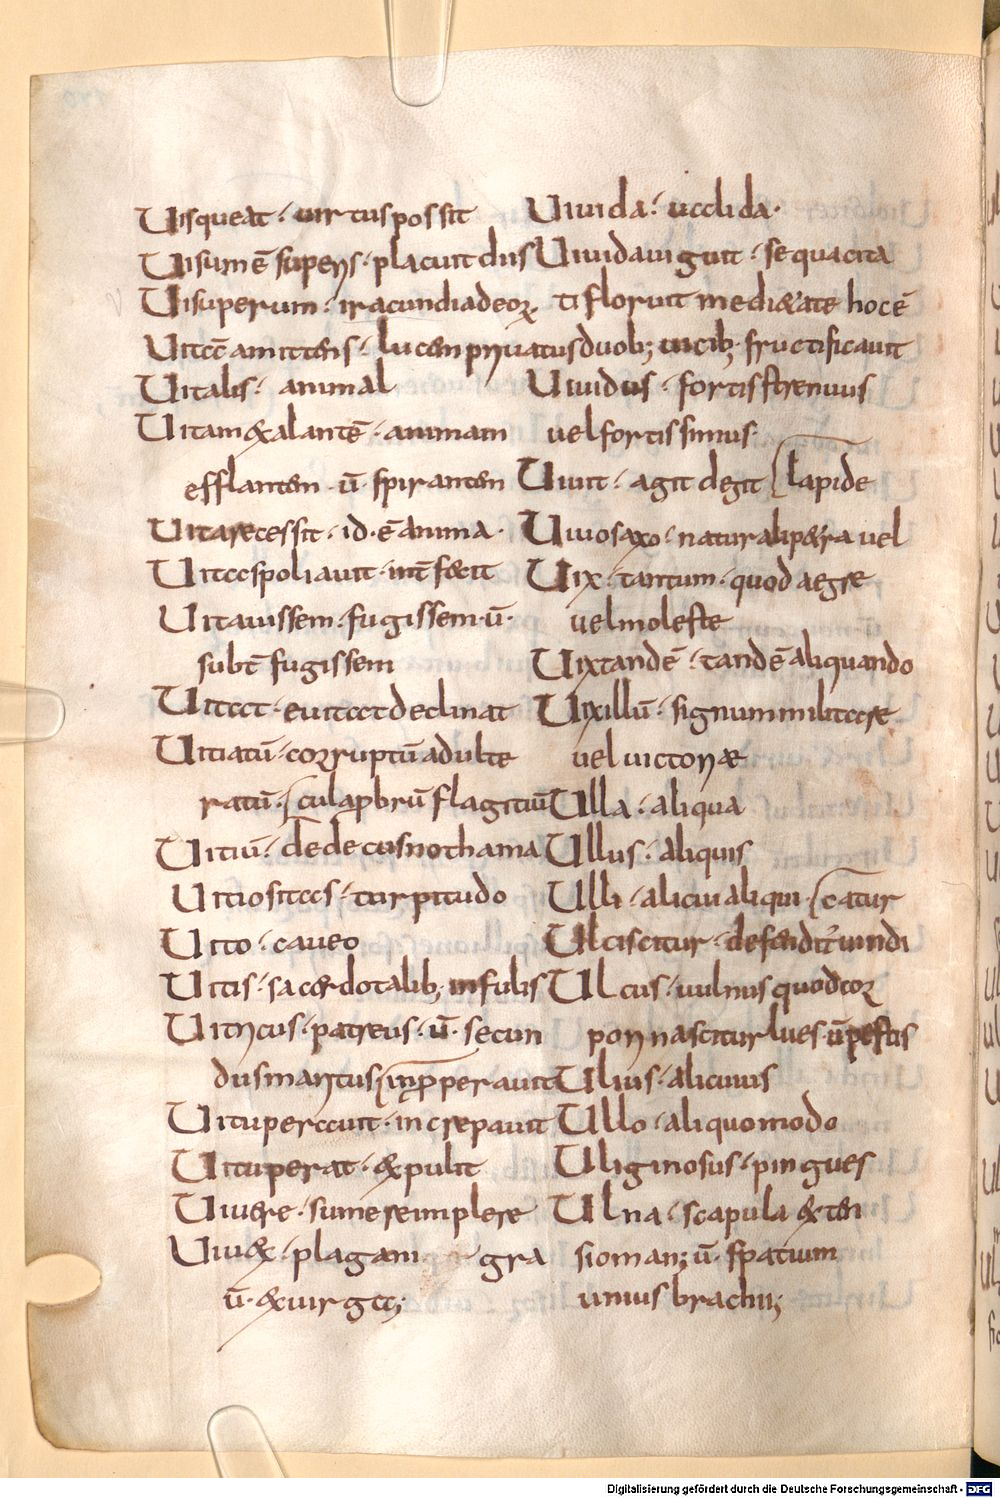 Uisqueat · uirtus possit
Uisum ē superis · placuit diis
Uis uperum · iracundia deoꝝ
Uita amittens · lucem priuatus
Uitalis · animal
Uitam & alantē · animam
efflantem · ū · spirantem
Uita recessit · id · ē anima ·
Uita spoliauit · int̄fecit
Uitauissem · fugissem · ū ·
subt̄ fugissem
Uitat · euitat declinat
Uitiatū · corruptū adulte
ratū · culpa ꝓbrū flagitiū
Uitiū · dedecus notha ma
Uitiositas · turpitudo
Uito · caueo
Uitis · sacerdotalib; infulis
Uitricus · patreus · ū · secun
dus maritus inꝓperauit
Uituperauit · increpauit
Uituperat · expulit
Uiuere · sumere implere
Uiuex · plagam
ū · & uirga;
Uiuida · ualida ·
Uiuida uiguit · sequacita
ti floruit mediaetate hoc ē
duob; uicib; fructificauit
Uiuidus · fortis strenuus
uel fortissimus ·
Uiuit · agit degit lapide
Uiuo saxo · naturali petra uel
Uix · tantum · quod aegre
uel moleste
Uix tandē · tandē aliquando
Uixillū · signum militare
uel uictoriae
Ulla · aliqua
Ullus · aliquis
Ulli · alicui aliqui catur
Ulciscitur · defendit uindi
Ulcus · uulnus quod cor
pori nascitur lues · ū pestis
Ulius · alicuius
Ullo · aliquo modo
Uliginosus · pingues
Ulna · scapula exten
gra sio man; ū · spatium
unius brachii;
Digitalisierung gefördert durch die Deutsche Forschungsgemeinschaft - DFG